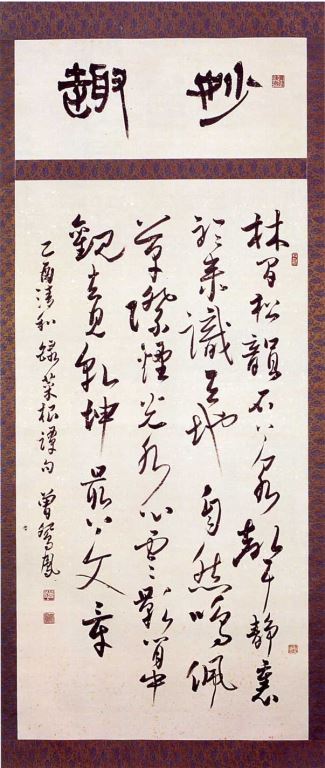 妙趣
林間松韻石上泉聲靜裏
聽來識天地自然鳴佩
草際煙光水心雲影閒中
觀去見乾坤最上文章
乙酉清和錄菜根譚句 曾鳳